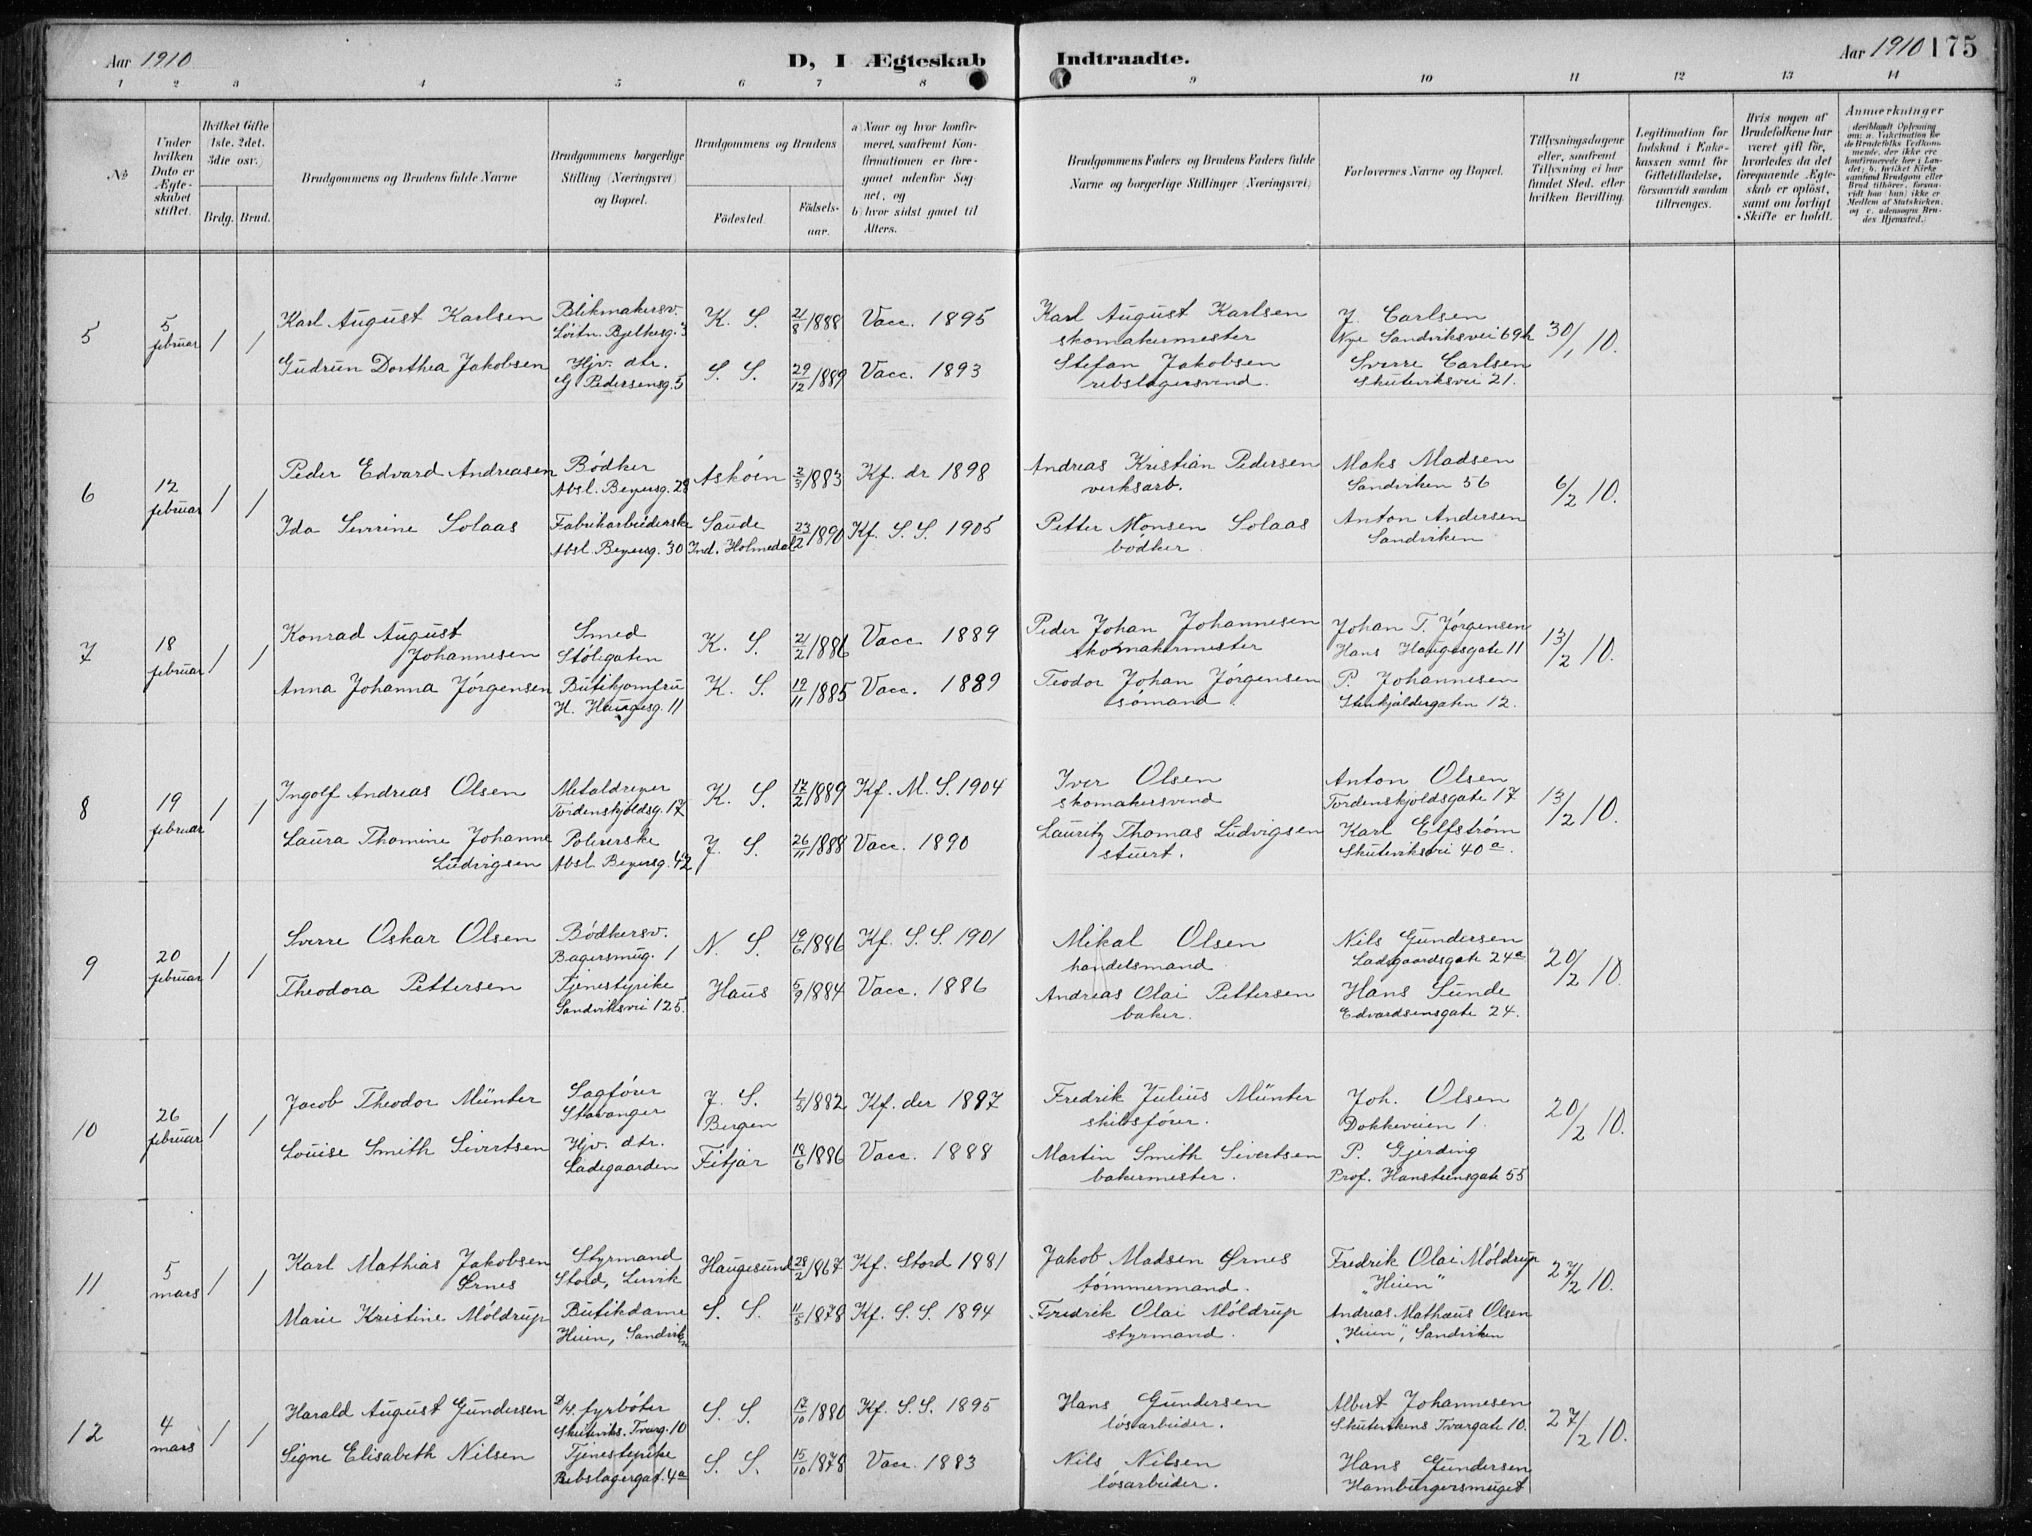 Aar 1910
D, I Ægteskab
Indtraadte.
Aar 1910 175
1 2 3 4 5 6 7 8 9 10 11 12 13 14
№
Under hvilken Dato er Ægteskabet stiftet.
Hvilket Gifte (1ste. 2det. 3die osv.)
Brdg. Brud.
Brudgommens og Brudens fulde Navne
Brudgommens borgerlige Stilling (Næringsvei) og Bopæl.
Brudgommens og Brudens
Födested.
Födselsaar.
a) Naar og hvor konfirmeret, saafremt Konfirmationen er foregaaet udenfor Sognet, og
b) hvor sidst gaaet til Alters.
Brudgommens Faders og Brudens Faders fulde Navne og borgerlige Stillinger (Næringsvei)
Forlovernes Navne og Bopæl.
Tillysningsdagene eller, saafremt Tillysning ei har fundet Sted, efter hvilken Bevilling.
Legitimation for Indskud i Enkekassen samt for Giftetilladelse, forsaavidt saadan tiltrænges.
Hvis nogen af Brudefolkene har været gift før, hvorledes da det foregaaende Ægteskab er oplöst, samt om lovligt Skifte er holdt.
Anmerkninger
(deriblandt Oplysning om: a. Vakcination for de Brudefolks Vedkommende, der ikke ere konfirmerede her i Landet; b. hvilket Kirkesamfund Brudgom eller Brud tilhörer, forsaavidt han (hun) ikke er Medlem af Statskirken, og c. udensogns Brudes Hjemsted.)
5
5 februar
1 1
Karl August Karlsen
Blikmakersv.
Löitn. Bjelkesg. 3
K. S. 21/8 1888 Vacc. 1895
Karl August Karlsen
skomakermester
J. Carlsen
Nye Sandviksvei 69 h
30/1 10.
Gudrun Dorthea Jakobsen
Hjv. dtr.
G. Pedersensg. 5
S. S. 29/12 1889 Vacc. 1893
Stefan Jakobsen
rebslagersvend.
Sverre Carlsen
Skuteviksvei 21.
6
12 februar
1 1
Peder Edvard Andreasen
Bödker
Absl. Beyersg. 28
Asköen 2/3 1883 Kf. dr 1898
Andreas Kristian Pedersen
verksarb.
Maks Madsen
Sandviken 56
6/2 10.
Ida Severine Solaas
Fabrikarbeiderske
Absl. Beyersg. 30
Saude
Ind. Holmedal
23/2 1890 Kf. S. S. 1905
Petter Monsen Solaas
bödker.
Anton Andersen
Sandviken
7
18 februar
1 1
Konrad August
Johannesen
Smed
Stölegaten
K. S. 21/2 1886 Vacc. 1889
Peder Johan Johannesen
skomakermester
Johan T. Jörgensen
Hans Haugesgate 11
13/2 10.
Anna Johanna Jörgensen
Butikjomfru
H. Haugesg. 11
K. S. 19/11 1885 Vacc. 1889
Teodor Johan Jörgensen
sömand.
P. Johannesen
Stenkjeldergaten 12.
8
19 februar
1 1
Ingolf Andreas Olsen
Metaldreier
Tordenskjoldsg. 17
K. S. 17/2 1889 Kf. M. S. 1904
Iver Olsen
skomakersvend
Anton Olsen
Tordenskjoldsgate 17
13/2 10.
Laura Thomine Johanne
Ludvigsen
Polererske
Absl. Beyersg. 42
J. S. 26/11 1888 Vacc. 1890
Lauritz Thomas Ludvigsen
stuert.
Karl Elfström
Skuteviksvei 40 a.
9
20 februar
1 1
Sverre Oskar Olsen
Bödkersv.
Bagersmug. 1
N. S. 19/6 1886 Kf. S. S. 1901
Mikal Olsen
handelsmand
Nils Gundersen
Ladegaardsgate 24 a
20/2 10.
Theodora Pettersen
Tjenestepike
Sandviksvei 125.
Haus 5/9 1884 Vacc. 1886
Andreas Olai Pettersen
baker.
Hans Sunde
Edvardsensgate 24.
10
26 februar
1 1
Jacob Theodor Münter
Sagförer
Stavanger
J. S.
Bergen
1/3 1882 Kf. der 1897
Fredrik Julius Münter
skibsförer.
Joh. Olsen
Dokkeveien 1.
20/2 10.
Louise Smith Sivertsen
Hjv. dtr.
Ladegaarden
Fitjar 18/6 1886 Vacc. 1888
Martin Smith Sivertsen
bakermester.
P. Gjerding
Prof. Hansteensgate 55
11
5 mars
1 1
Karl Mathias Jakobsen
Ørnes
Styrmand
Stord, Lervik
Haugesund 28/2 1867 Kf. Stord 1881
Jakob Madsen Ørnes
tömmermand.
Fredrik Olai Möldrup
"Heien"
27/2 10.
Marie Kristine Möldrup
Butikdame
Heien, Sandviken
S. S. 11/5 1878 Kf. S. S. 1894
Fredrik Olai Möldrup
styrmand.
Andreas Mathæus Olsen
"Heien", Sandviken
12
4 mars
1 1
Harald August Gundersen
D/S. fyrböter
Skuteviks. Tverg. 10
S. S. 17/10 1880 Kf. S. S. 1895
Hans Gundersen
lösarbeider.
Albert Johannesen
Skutevikens Tvergate 10.
27/2 10.
Signe Elisabeth Nilsen
Tjenestepike
Rebslagergat. 4 a
S. S. 15/10 1878 Vacc. 1883
Nils Nilsen
lösarbeider.
Hans Gundersen
Hamburgersmuget